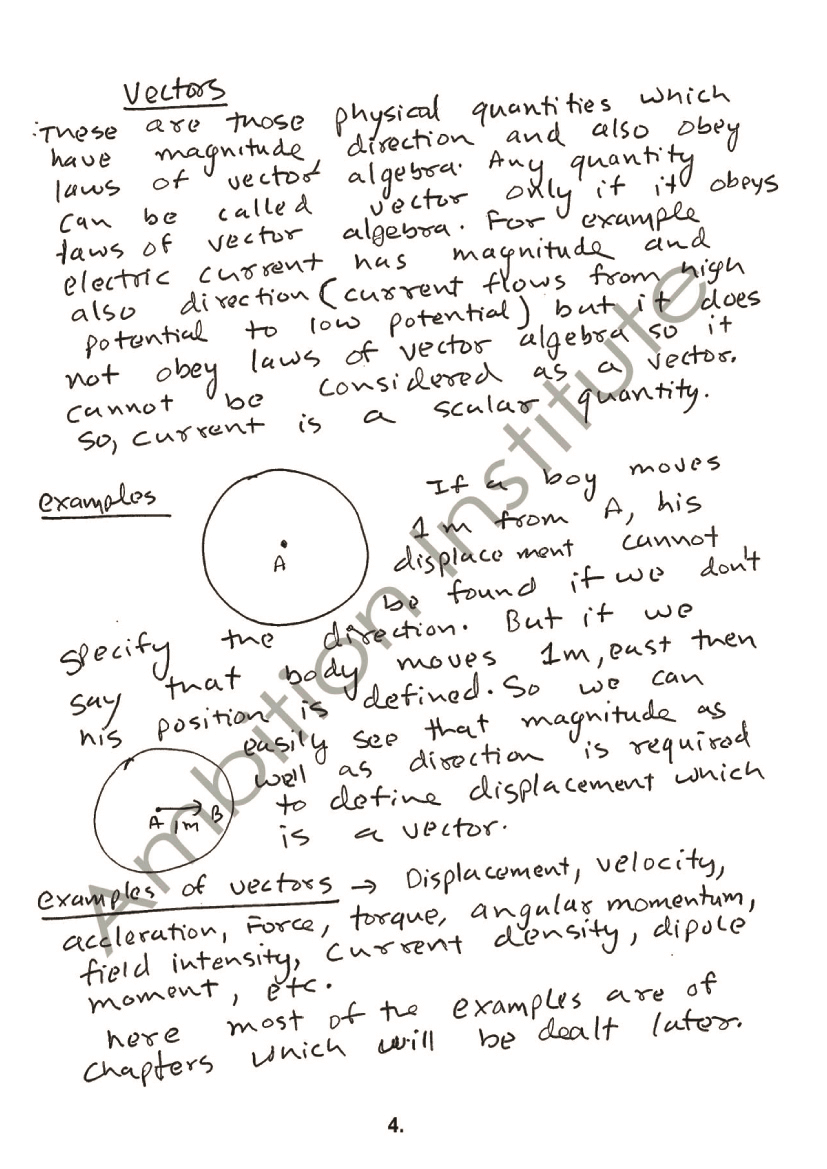 Vectors
These are those physical quantities which
have magnitude, direction and also obey
laws of vector algebra. Any quantity
can be called vector only if it obeys
laws of vector algebra. For example
electric current has magnitude and
also direction (current flows from high
potential to low potential) but it does
not obey laws of vector algebra so it
cannot be considered as a vector.
So, current is a scalar quantity.
examples
A
If a boy moves
1m from A, his
displacement cannot
be found if we don't
specify the direction. But if we
say that body moves 1m, east then
his position is defined. So we can
easily see that magnitude as
well as direction is required
to define displacement which
is a vector.
A 1m B
examples of vectors → Displacement, velocity,
accleration, Force, torque, angular momentum,
field intensity, current density, dipole
moment, etc.
here most of the examples are of
chapters which will be dealt later.
Ambition Institute
4.